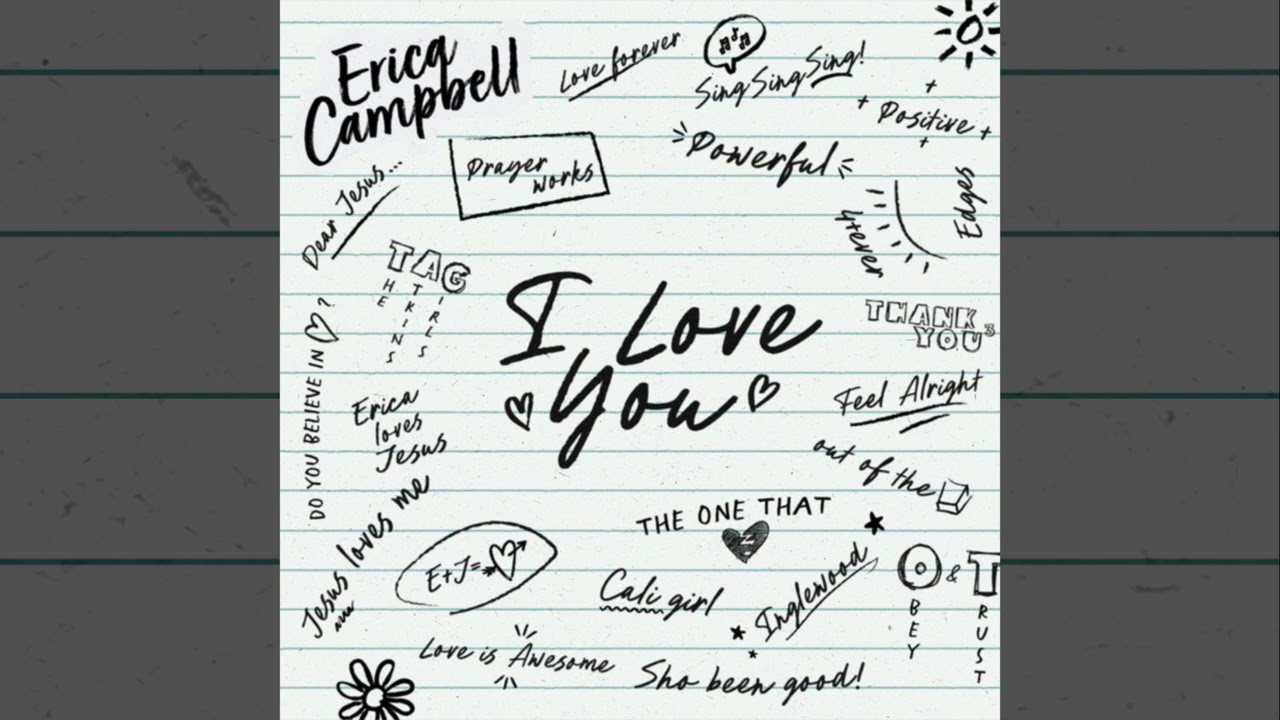 Erica
Campbell
Love forever
Sing Sing Sing!
+ Positive +
Powerful
Prayer
works
Dear Jesus...
Edges
4+ever
TAG
HE
ATKINS
GIRLS
I Love
You
THANK
YOU³
DO YOU BELIEVE IN ♡?
Feel Alright
Erica
loves
Jesus
out of the
Jesus loves me
THE ONE THAT
E+J=
Cali girl
Inglewood
O & T
BEY
RUST
Love is Awesome
Sho been good!